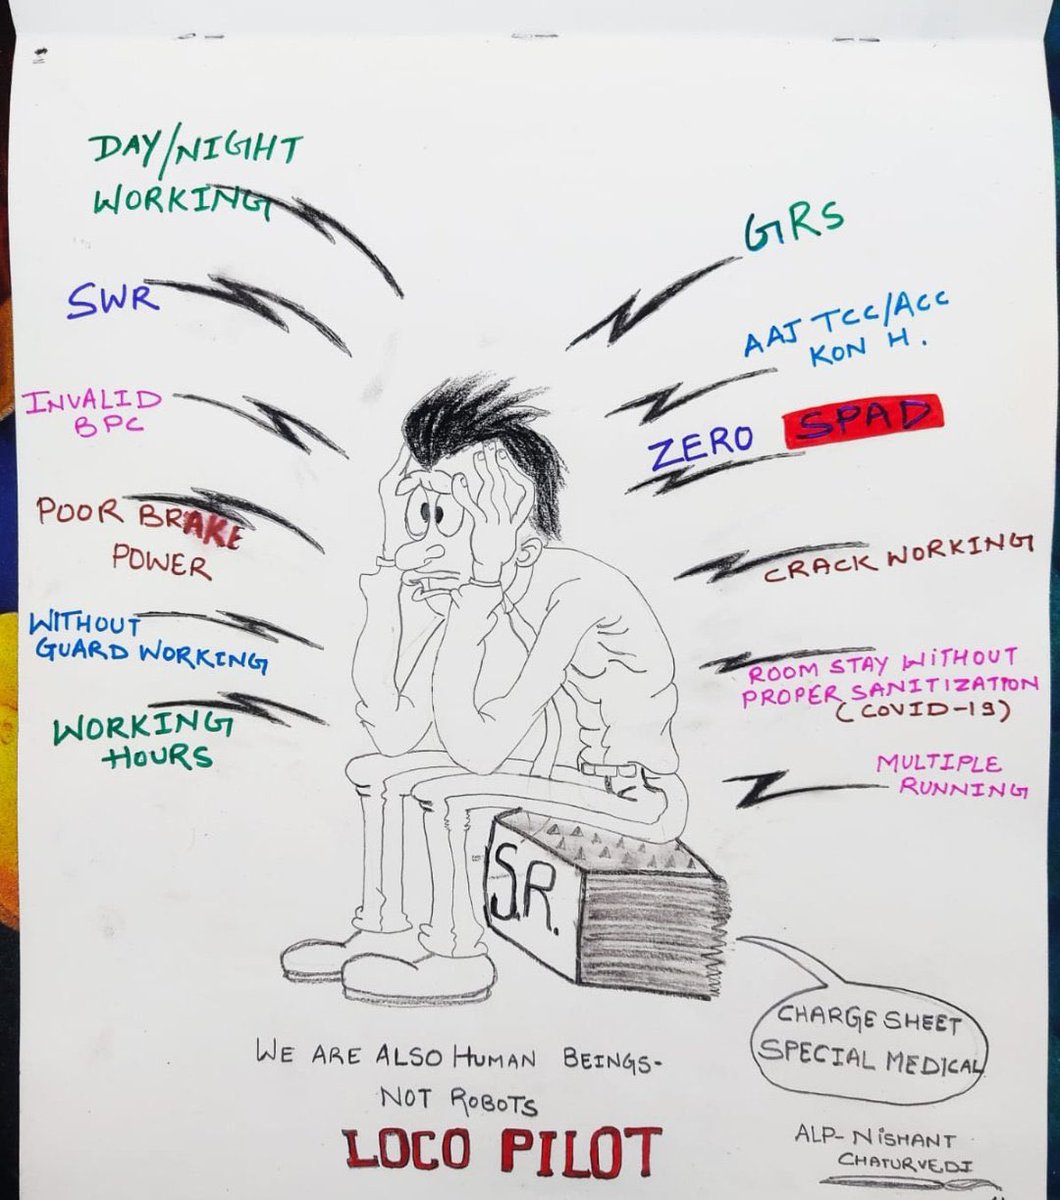 DAY/NIGHT
WORKING
SWR
INVALID
BPC
POOR BRAKE
POWER
WITHOUT
GUARD WORKING
WORKING
HOURS
GRS
AAJ TCC/ACC
KON H.
ZERO SPAD
CRACK WORKING
ROOM STAY WITHOUT
PROPER SANITIZATION
(COVID-19)
MULTIPLE
RUNNING
S.R.
CHARGE SHEET
SPECIAL MEDICAL
WE ARE ALSO HUMAN BEINGS-
NOT ROBOTS
LOCO PILOT
ALP-NISHANT
CHATURVEDI